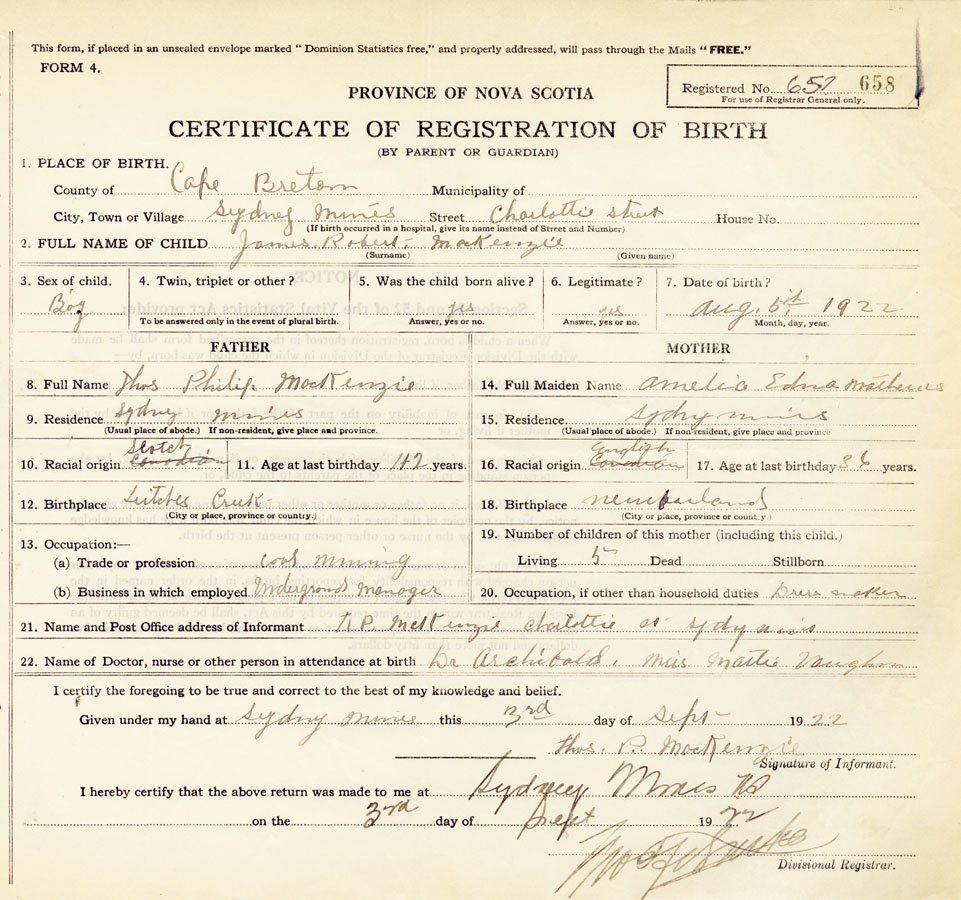 This form, if placed in an unsealed envelope marked "Dominion Statistics free," and properly addressed, will pass through the Mails "FREE."
FORM 4.
Registered No. 657 658
For use of Registrar General only.
PROVINCE OF NOVA SCOTIA
CERTIFICATE OF REGISTRATION OF BIRTH
(BY PARENT OR GUARDIAN)
1. PLACE OF BIRTH.
County of Cape Breton Municipality of
City, Town or Village Sydney Mines Street Charlottie Street House No.
(If birth occurred in a hospital, give its name instead of Street and Number)
2. FULL NAME OF CHILD James Robert MacKenzie
(Surname) (Given name)
3. Sex of child. 4. Twin, triplet or other? 5. Was the child born alive? 6. Legitimate? 7. Date of birth?
Boy yes yes Aug. 5, 1922
To be answered only in the event of plural birth. Answer, yes or no. Answer, yes or no. Month, day, year.
FATHER MOTHER
8. Full Name Thos Philip MacKenzie 14. Full Maiden Name Amelia Edna Mathews
9. Residence Sydny mines 15. Residence Sydny mines
(Usual place of abode.) If non-resident, give place and province. (Usual place of abode.) If non-resident, give place and province
Scotch English
10. Racial origin Canadian 11. Age at last birthday 42 years. 16. Racial origin Canadian 17. Age at last birthday 36 years.
12. Birthplace Creek 18. Birthplace
(City or place, province or country.) (City or place, province or country.)
13. Occupation:— 19. Number of children of this mother (including this child.)
(a) Trade or profession coal mining Living 5 Dead Stillborn
(b) Business in which employed Underground Manager 20. Occupation, if other than household duties Dress maker
21. Name and Post Office address of Informant T. P. McKenzie Charlottie st Sydny mins
22. Name of Doctor, nurse or other person in attendance at birth Dr Archibald. Miss Mattie Vaughn
I certify the foregoing to be true and correct to the best of my knowledge and belief.
Given under my hand at Sydny Mines this 3rd day of Sept 1922
Thos. P. MacKenzie
Signature of Informant.
I hereby certify that the above return was made to me at Sydney Mines NS
on the 3rd day of Sept 1922
Divisional Registrar.